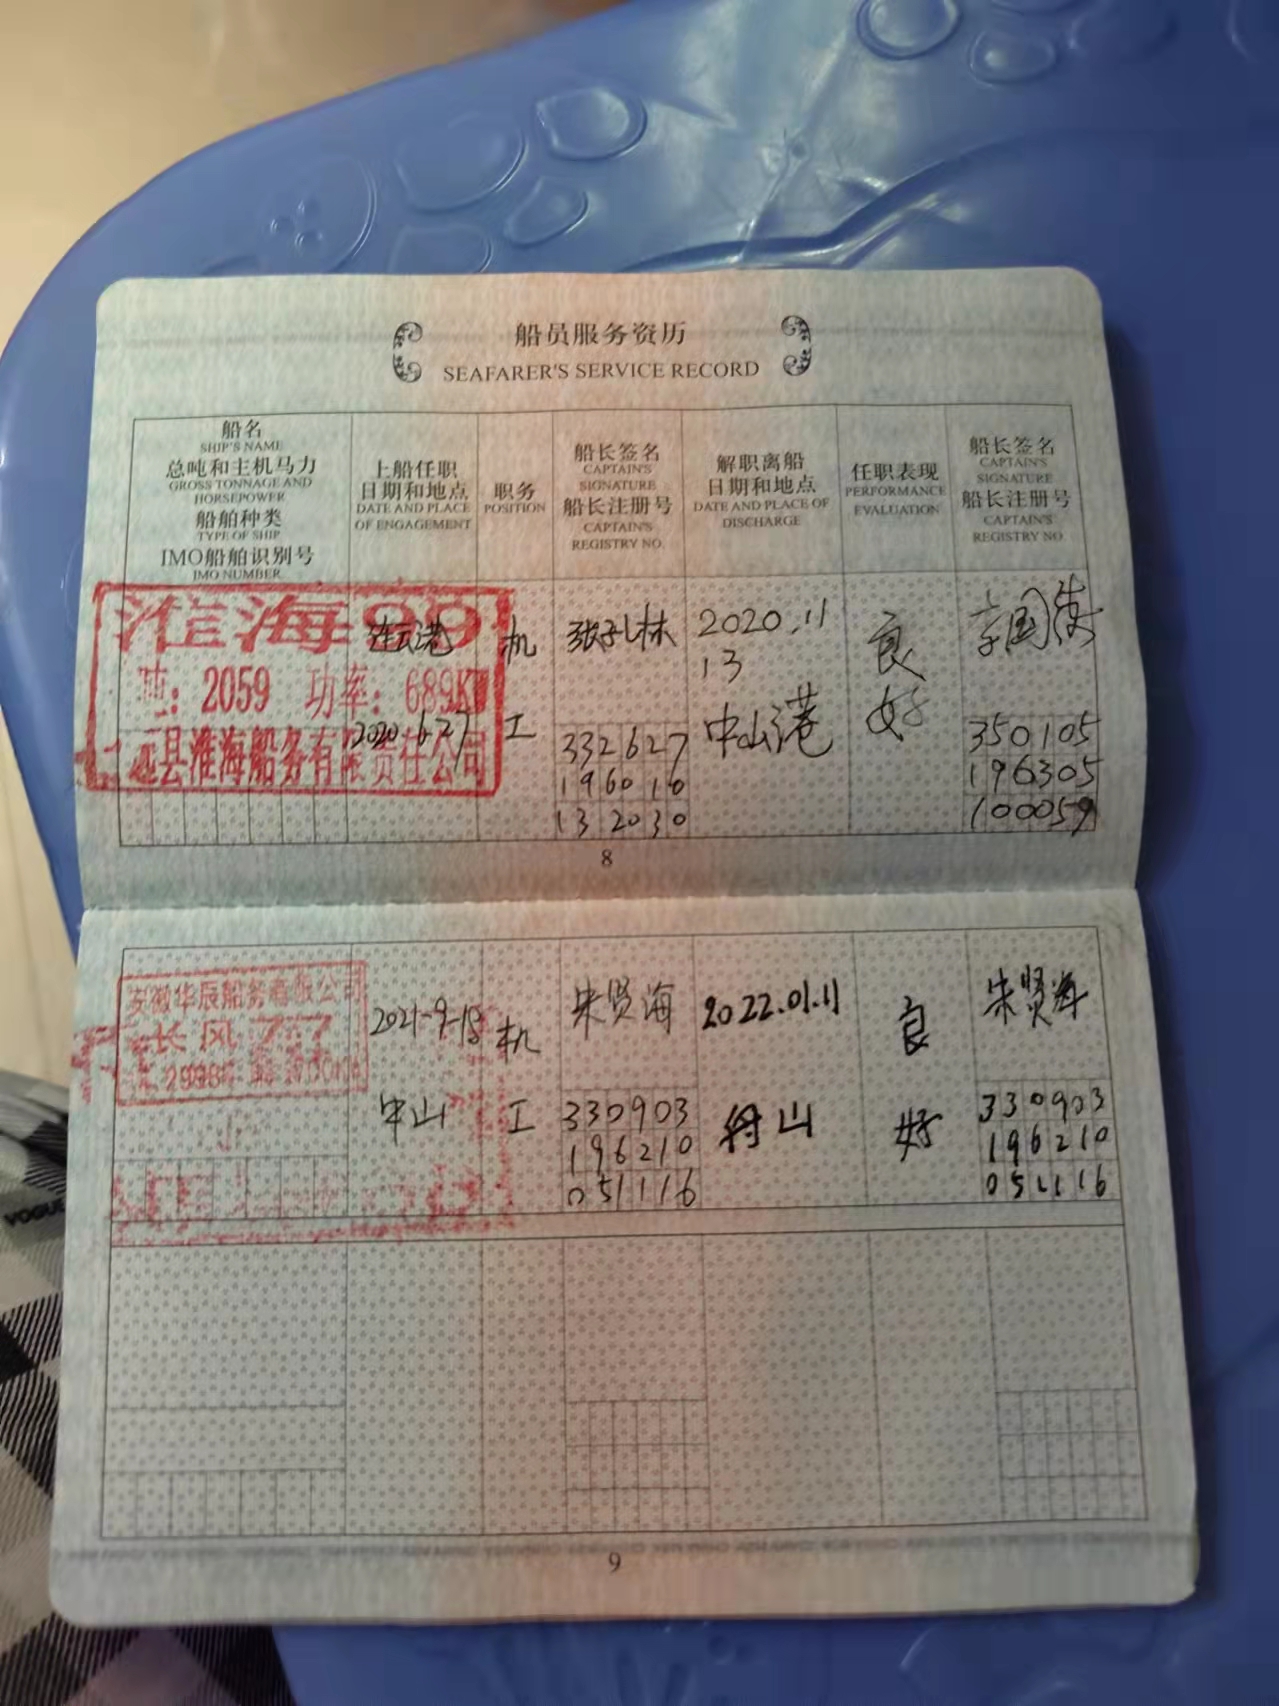 船员服务资历
SEAFARER'S SERVICE RECORD
船名
SHIP'S NAME
总吨和主机马力
GROSS TONNAGE AND
HORSEPOWER
船舶种类
TYPE OF SHIP
IMO船舶识别号
IMO NUMBER
上船任职
日期和地点
DATE AND PLACE
OF ENGAGEMENT
职务
POSITION
船长签名
CAPTAIN'S
SIGNATURE
船长注册号
CAPTAIN'S
REGISTRY NO.
解职离船
日期和地点
DATE AND PLACE OF
DISCHARGE
任职表现
PERFORMANCE
EVALUATION
船长签名
CAPTAIN'S
SIGNATURE
船长注册号
CAPTAIN'S
REGISTRY NO.
淮海99
2059 功率: 689KW
县淮海船务有限责任公司
连云港
2020.6.27
机
工
332627
196010
132030
2020.11
13
中山港
良
好
350105
196305
100059
8
安徽华辰船务有限公司
长风77
2021-9-18
中山
机
工
朱贤海
330903
196210
051116
2022.01.11
舟山
良
好
朱贤海
330903
196210
051116
9
VOGUE